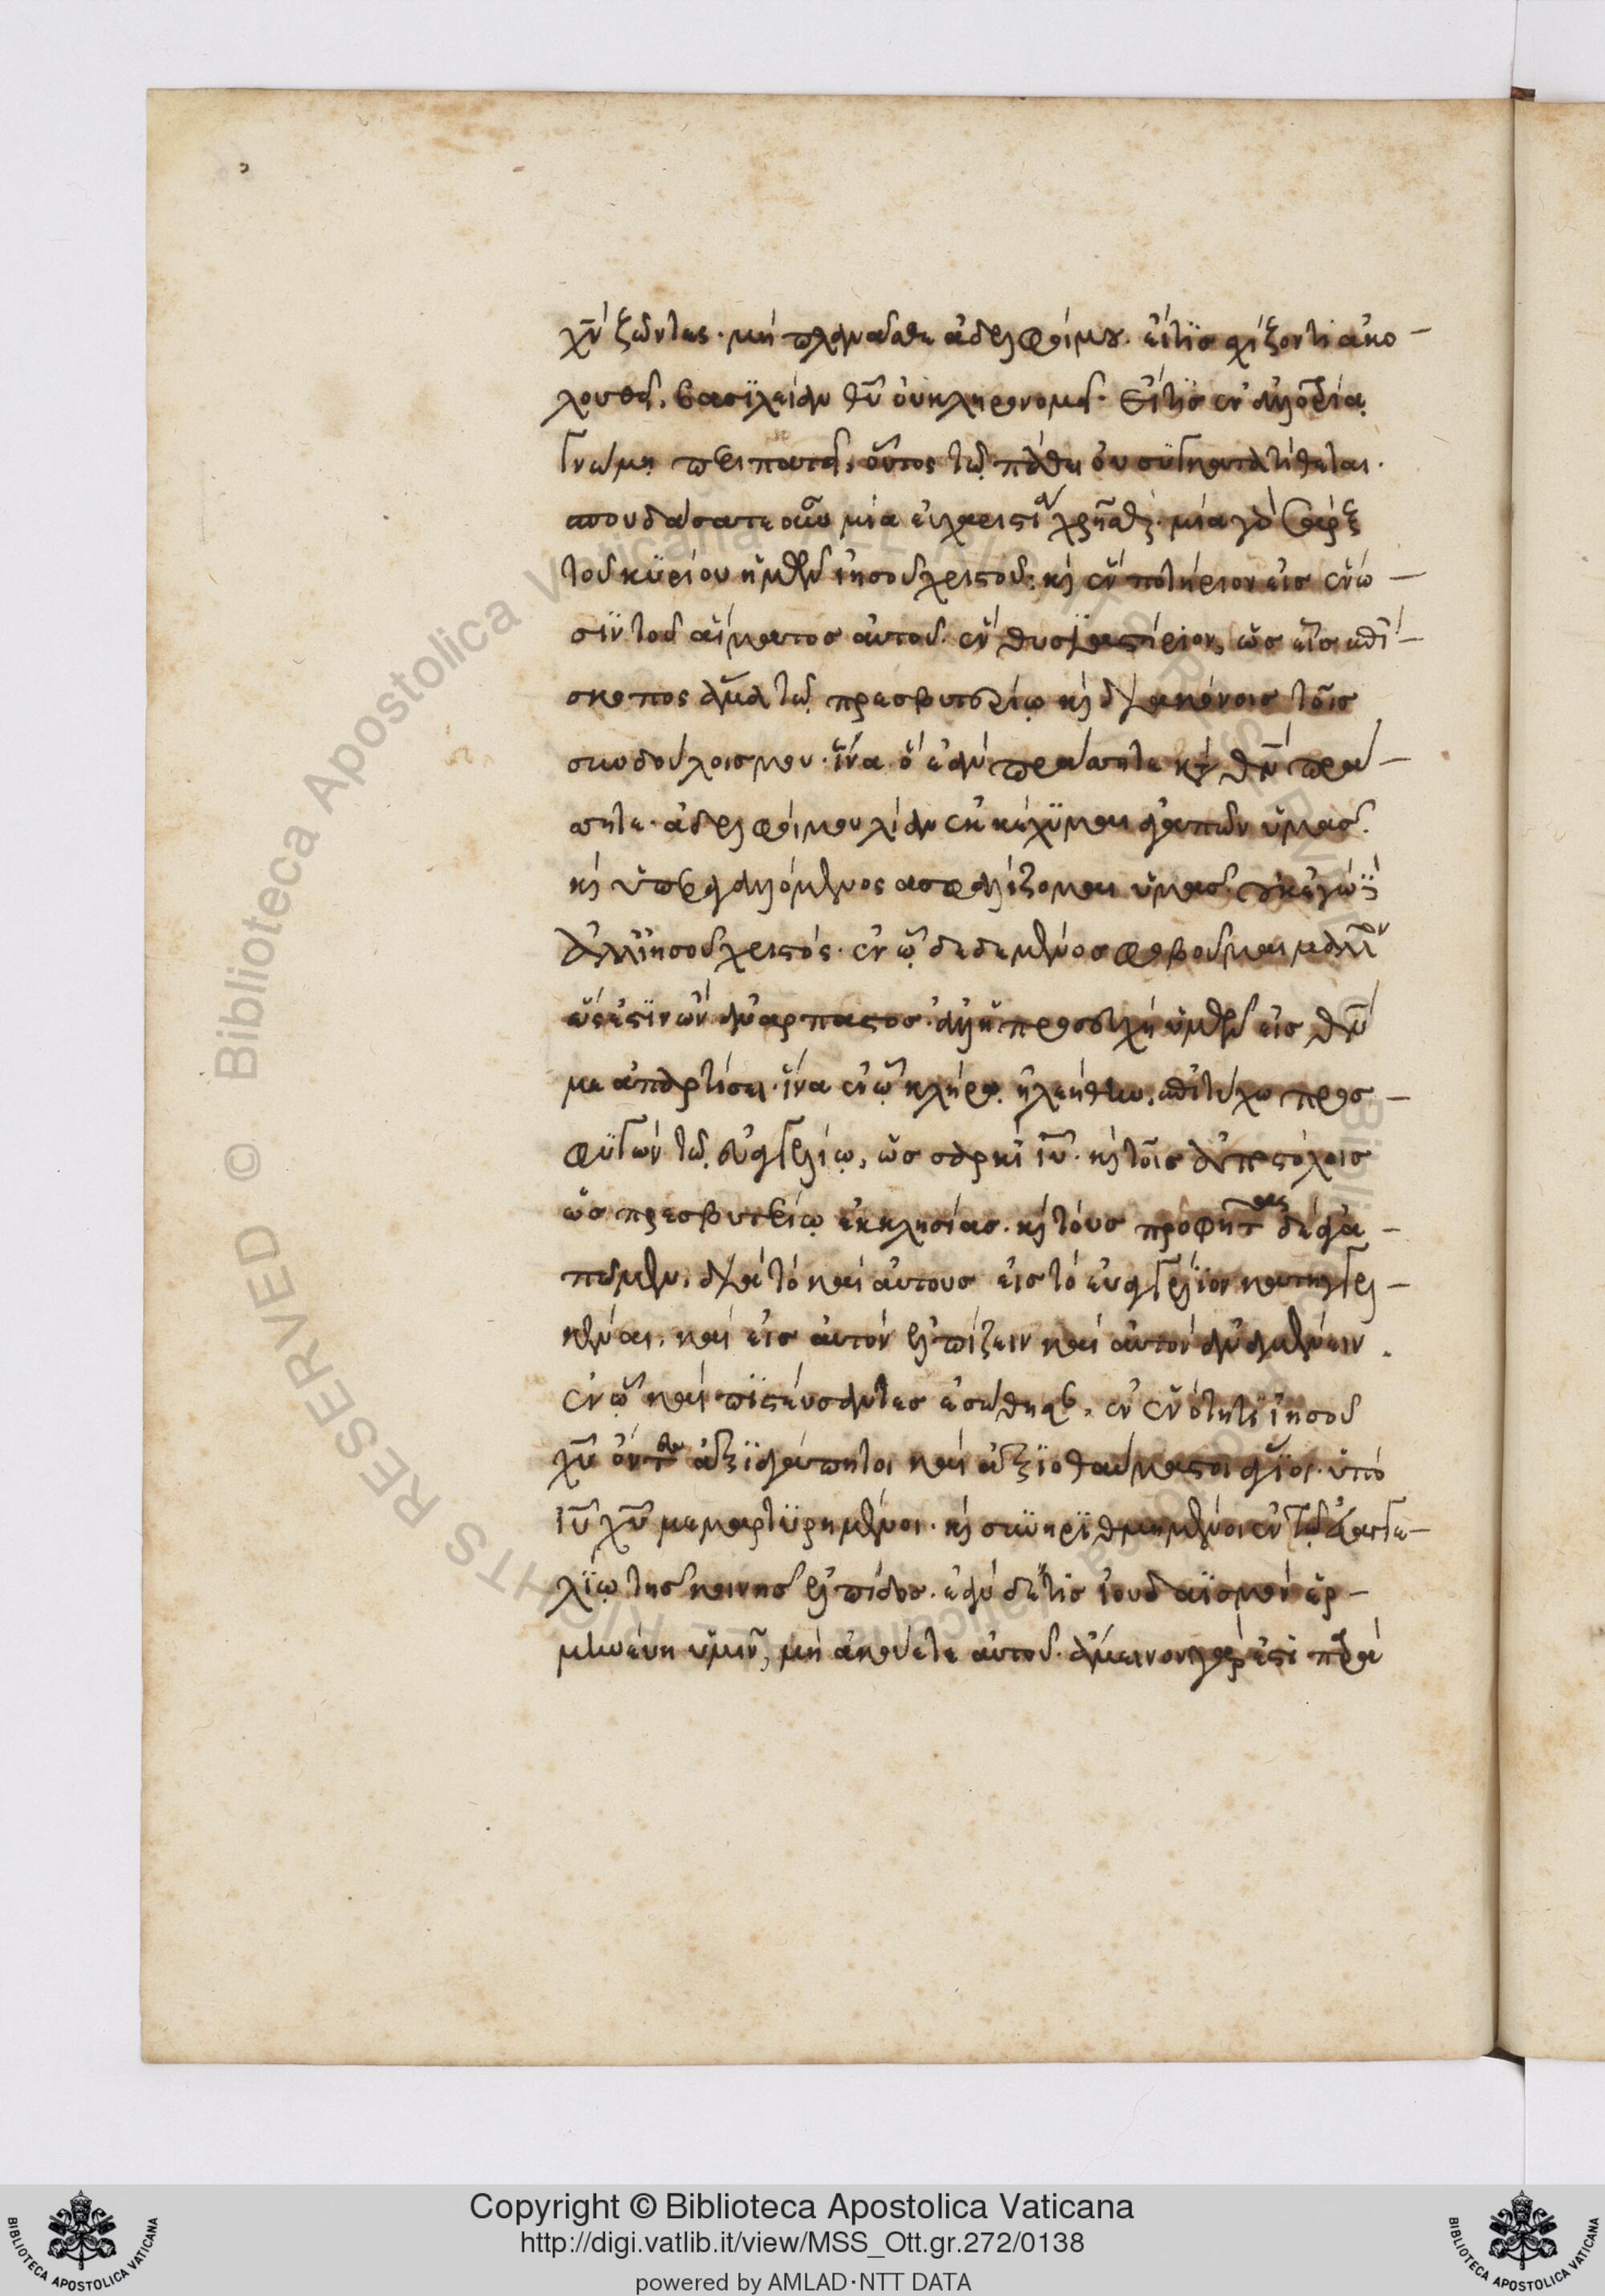 χν̄ ζῶντες· μὴ πλανᾶσθε ἀδελφοί μου· εἴ τϊς σχίζοντι ἀκο-
λουθεῖ, βασϊλείαν θῡ οὐ κληρονομεῖ· εἴ τϊς ἐν ἀλλοτρία
γνώμη περιπατεῖ, οὗτος τῶ πάθει οὐ συγκατατίθεται·
σπουδάσατε οὖν μία εὐχαριστία χρῆσθαι· μία γὰρ σάρξ
τοῦ κϋρίου ἡμῶν ἰησοῦ χριστοῦ· καὶ ἓν ποτήριον εἰς ἕνω-
σϊν τοῦ αἵματος αὐτοῦ· ἓν θυσϊαστήριον, ὡς εἷς ἐπί-
σκοπος ἅμα τῶ πρεσβυτερίω καὶ διακόνοις τοῖς
συνδούλοις μου· ἵνα ὃ ἐὰν πράσσητε κατὰ θν̄ πράσ-
σητε· ἀδελφοί μου λίαν ἐκκέχϋμαι ἀγαπῶν ὑμᾶς·
καὶ ὑπεραγαλλόμενος ἀσφαλίζομαι ὑμᾶς· οὐκ ἐγὼ δὲ
ἀλλ' ἰησοῦς χριστός· ἐν ᾧ δεδεμένος φοβοῦμαι μᾶλλον
ὡς ἔστϊν ὢν ἀνάρπαστος· ἀλλ' ἡ προσευχὴ ὑμῶν εἰς θν̄
με ἀπαρτίσει· ἵνα ἐν ᾧ κλήρω ἠλεήθην, ἐπιτύχω προσ-
φϋγὼν τῶ εὐαγγελίω, ὡς σαρκὶ ιῡ· καὶ τοῖς ἀποστόλοις
ὡς πρεσβυτερίω ἐκκλησίας· καὶ τοὺς προφήτας δὲ ἀγα-
πῶμεν, διὰ τὸ καὶ αὐτοὺς εἰς τὸ εὐαγγέλϊον κατηγγελ-
κέναι, καὶ εἰς αὐτὸν ἐλπίζειν καὶ αὐτὸν ἀναμένειν·
ἐν ᾧ καὶ πϊστεύσαντες ἐσώθησαν, ἐν ἑνότητϊ ἰησοῦ
χῡ ὄντες ἀξϊαγάπητοι καὶ ἀξϊοθαύμαστοι ἅγϊοι· ὑπὸ
ιῡ χῡ μεμαρτϋρημένοι· καὶ συνηρϊθμημένοι ἐν τῶ εὐαγγε-
λϊω τῆς κοινῆς ἐλπίδος· ἐὰν δέ τις ἰουδαϊσμὸν ἑρ-
μηνεύη ὑμῖν, μὴ ἀκούετε αὐτοῦ· ἄμεινον γάρ ἐστι παρὰ